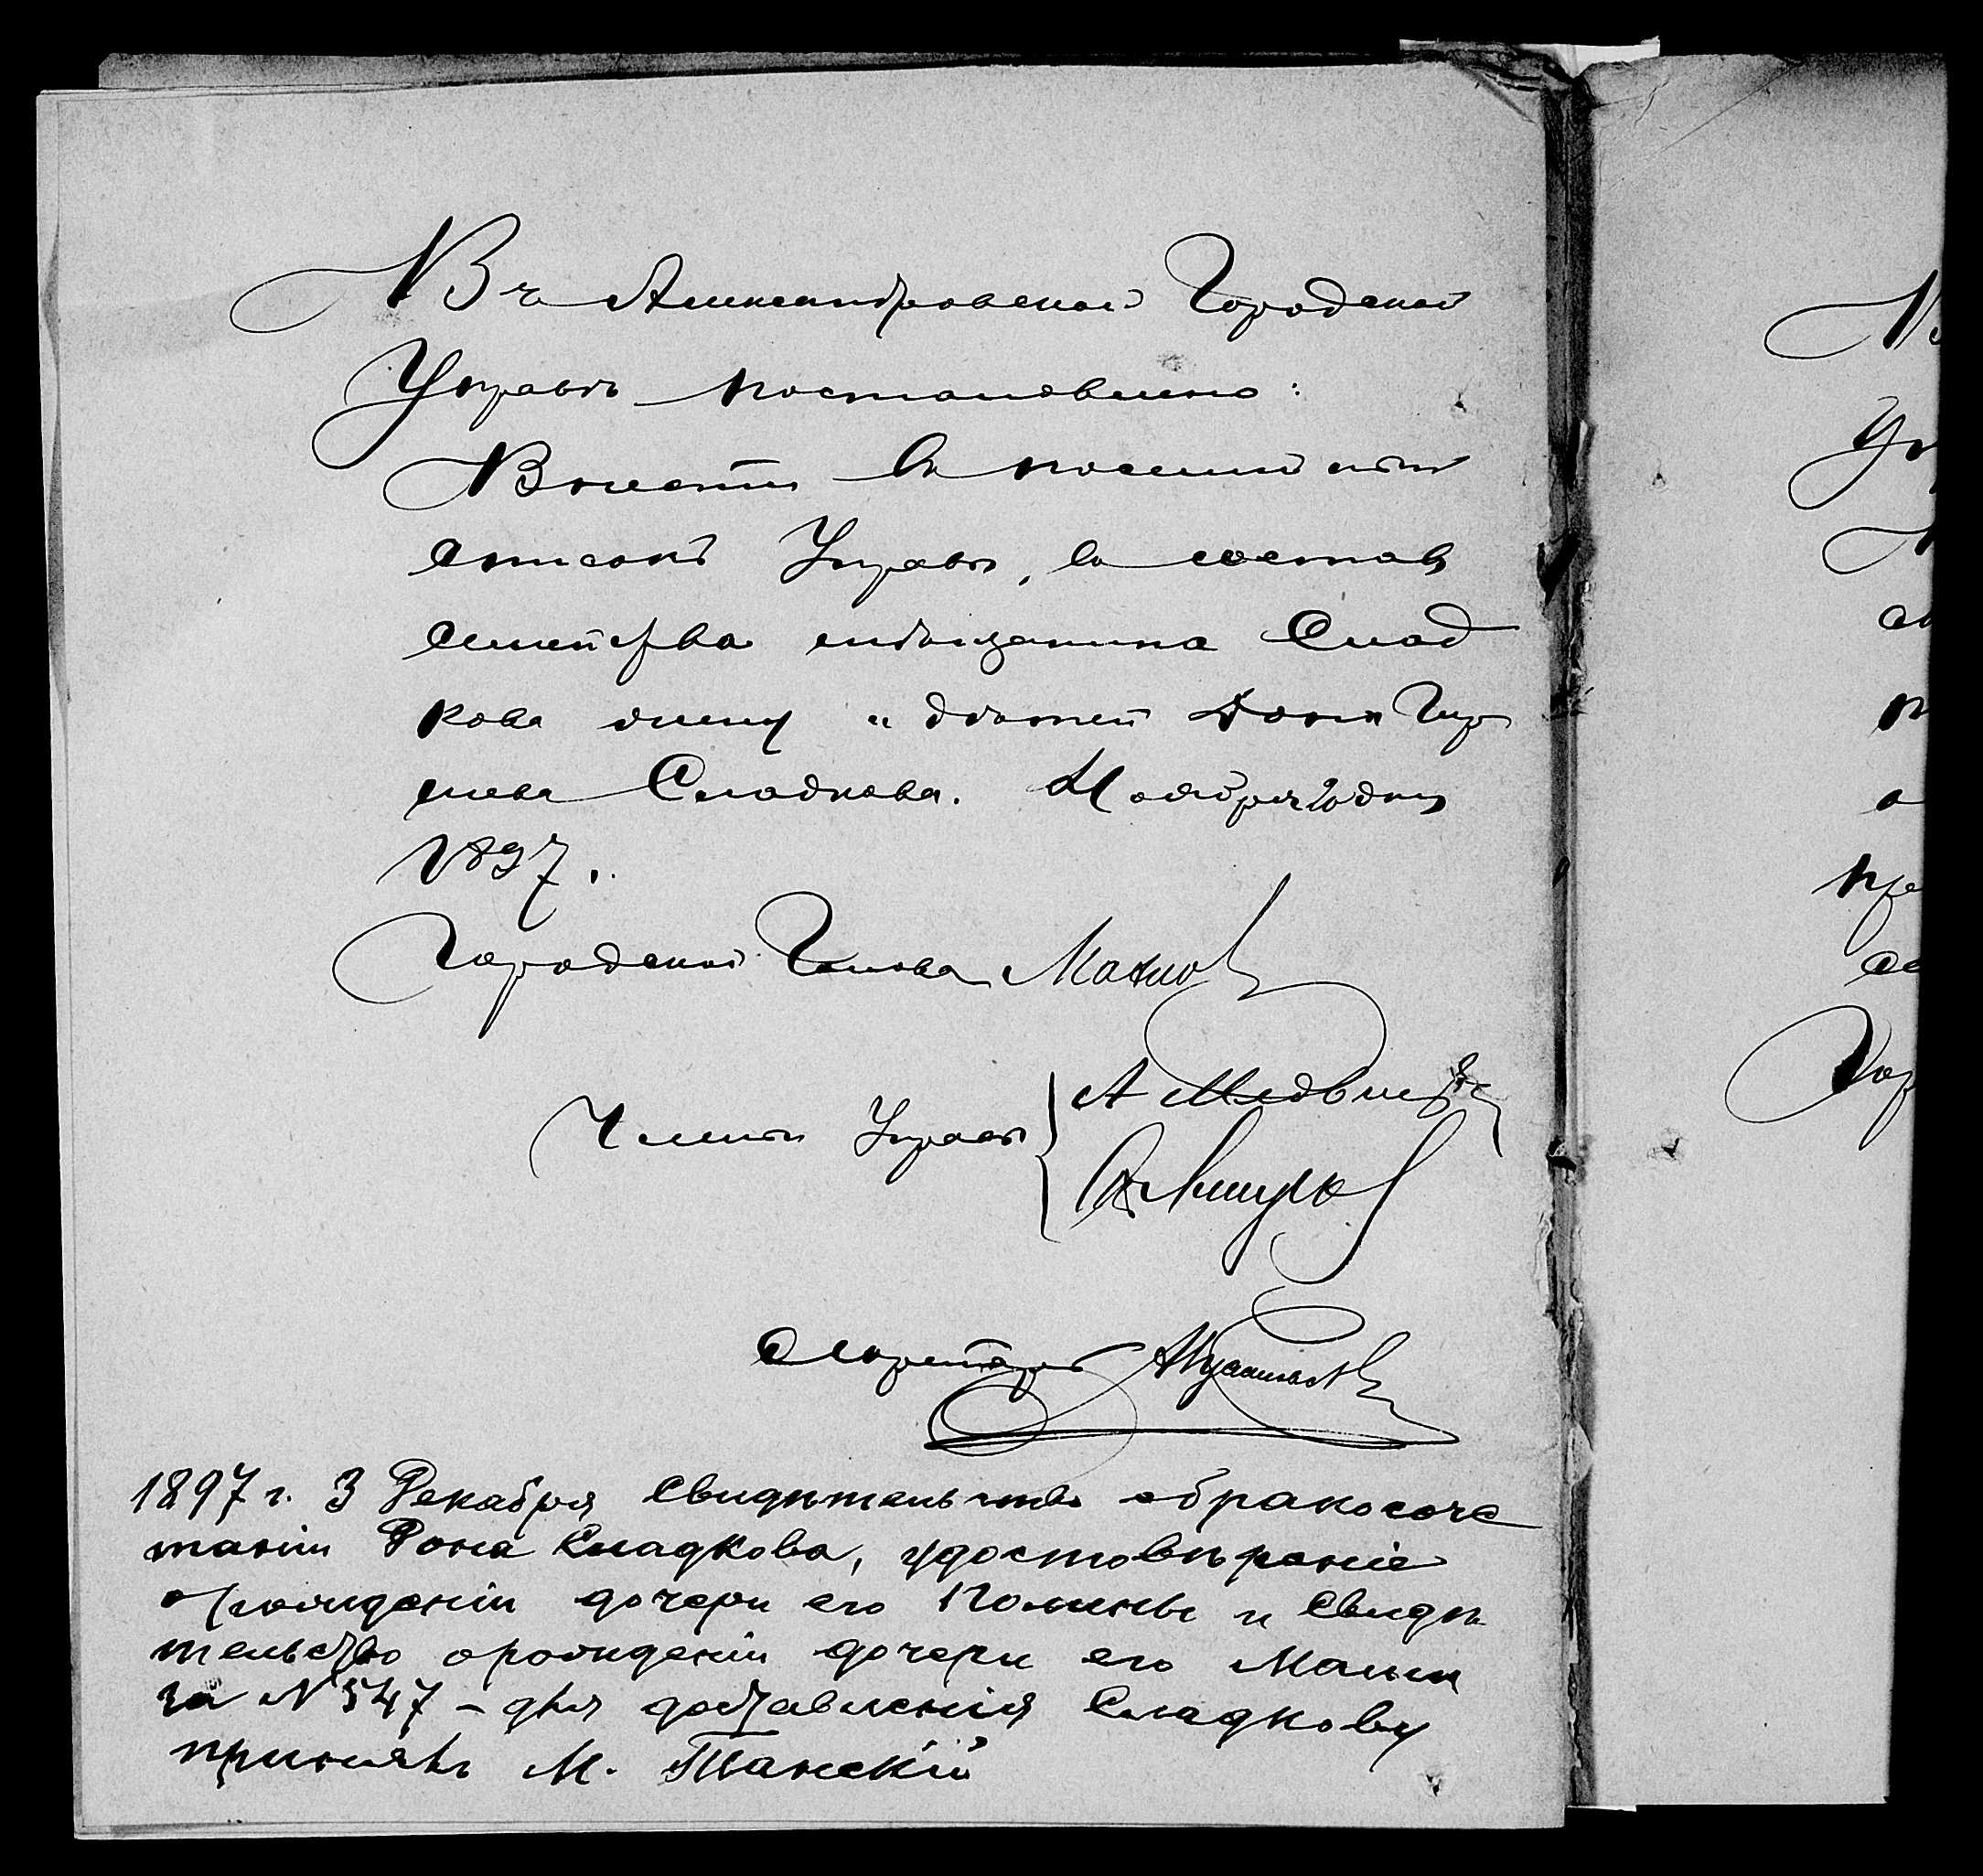 Въ Александровской Городской
Управѣ постановлено:
Внести въ посемейный
списокъ Управы, въ составъ
семейства мѣщанина Слад
кова жену и дѣтей Дона Гир
шева Сладкова. Ноября дня
1897.
Городской Голова
Члены Управы
А Медведев
Секретарь
1897 г. 3 Декабря Свидѣтельство о бракосоче
танiи Дона Сладкова, удостовѣренiе
о рожденiи дочери его Полины и Свидѣ
тельство о рожденiи дочери его Малки
за N 547 – для доставленiя Сладкову
принялъ М. Танскiй